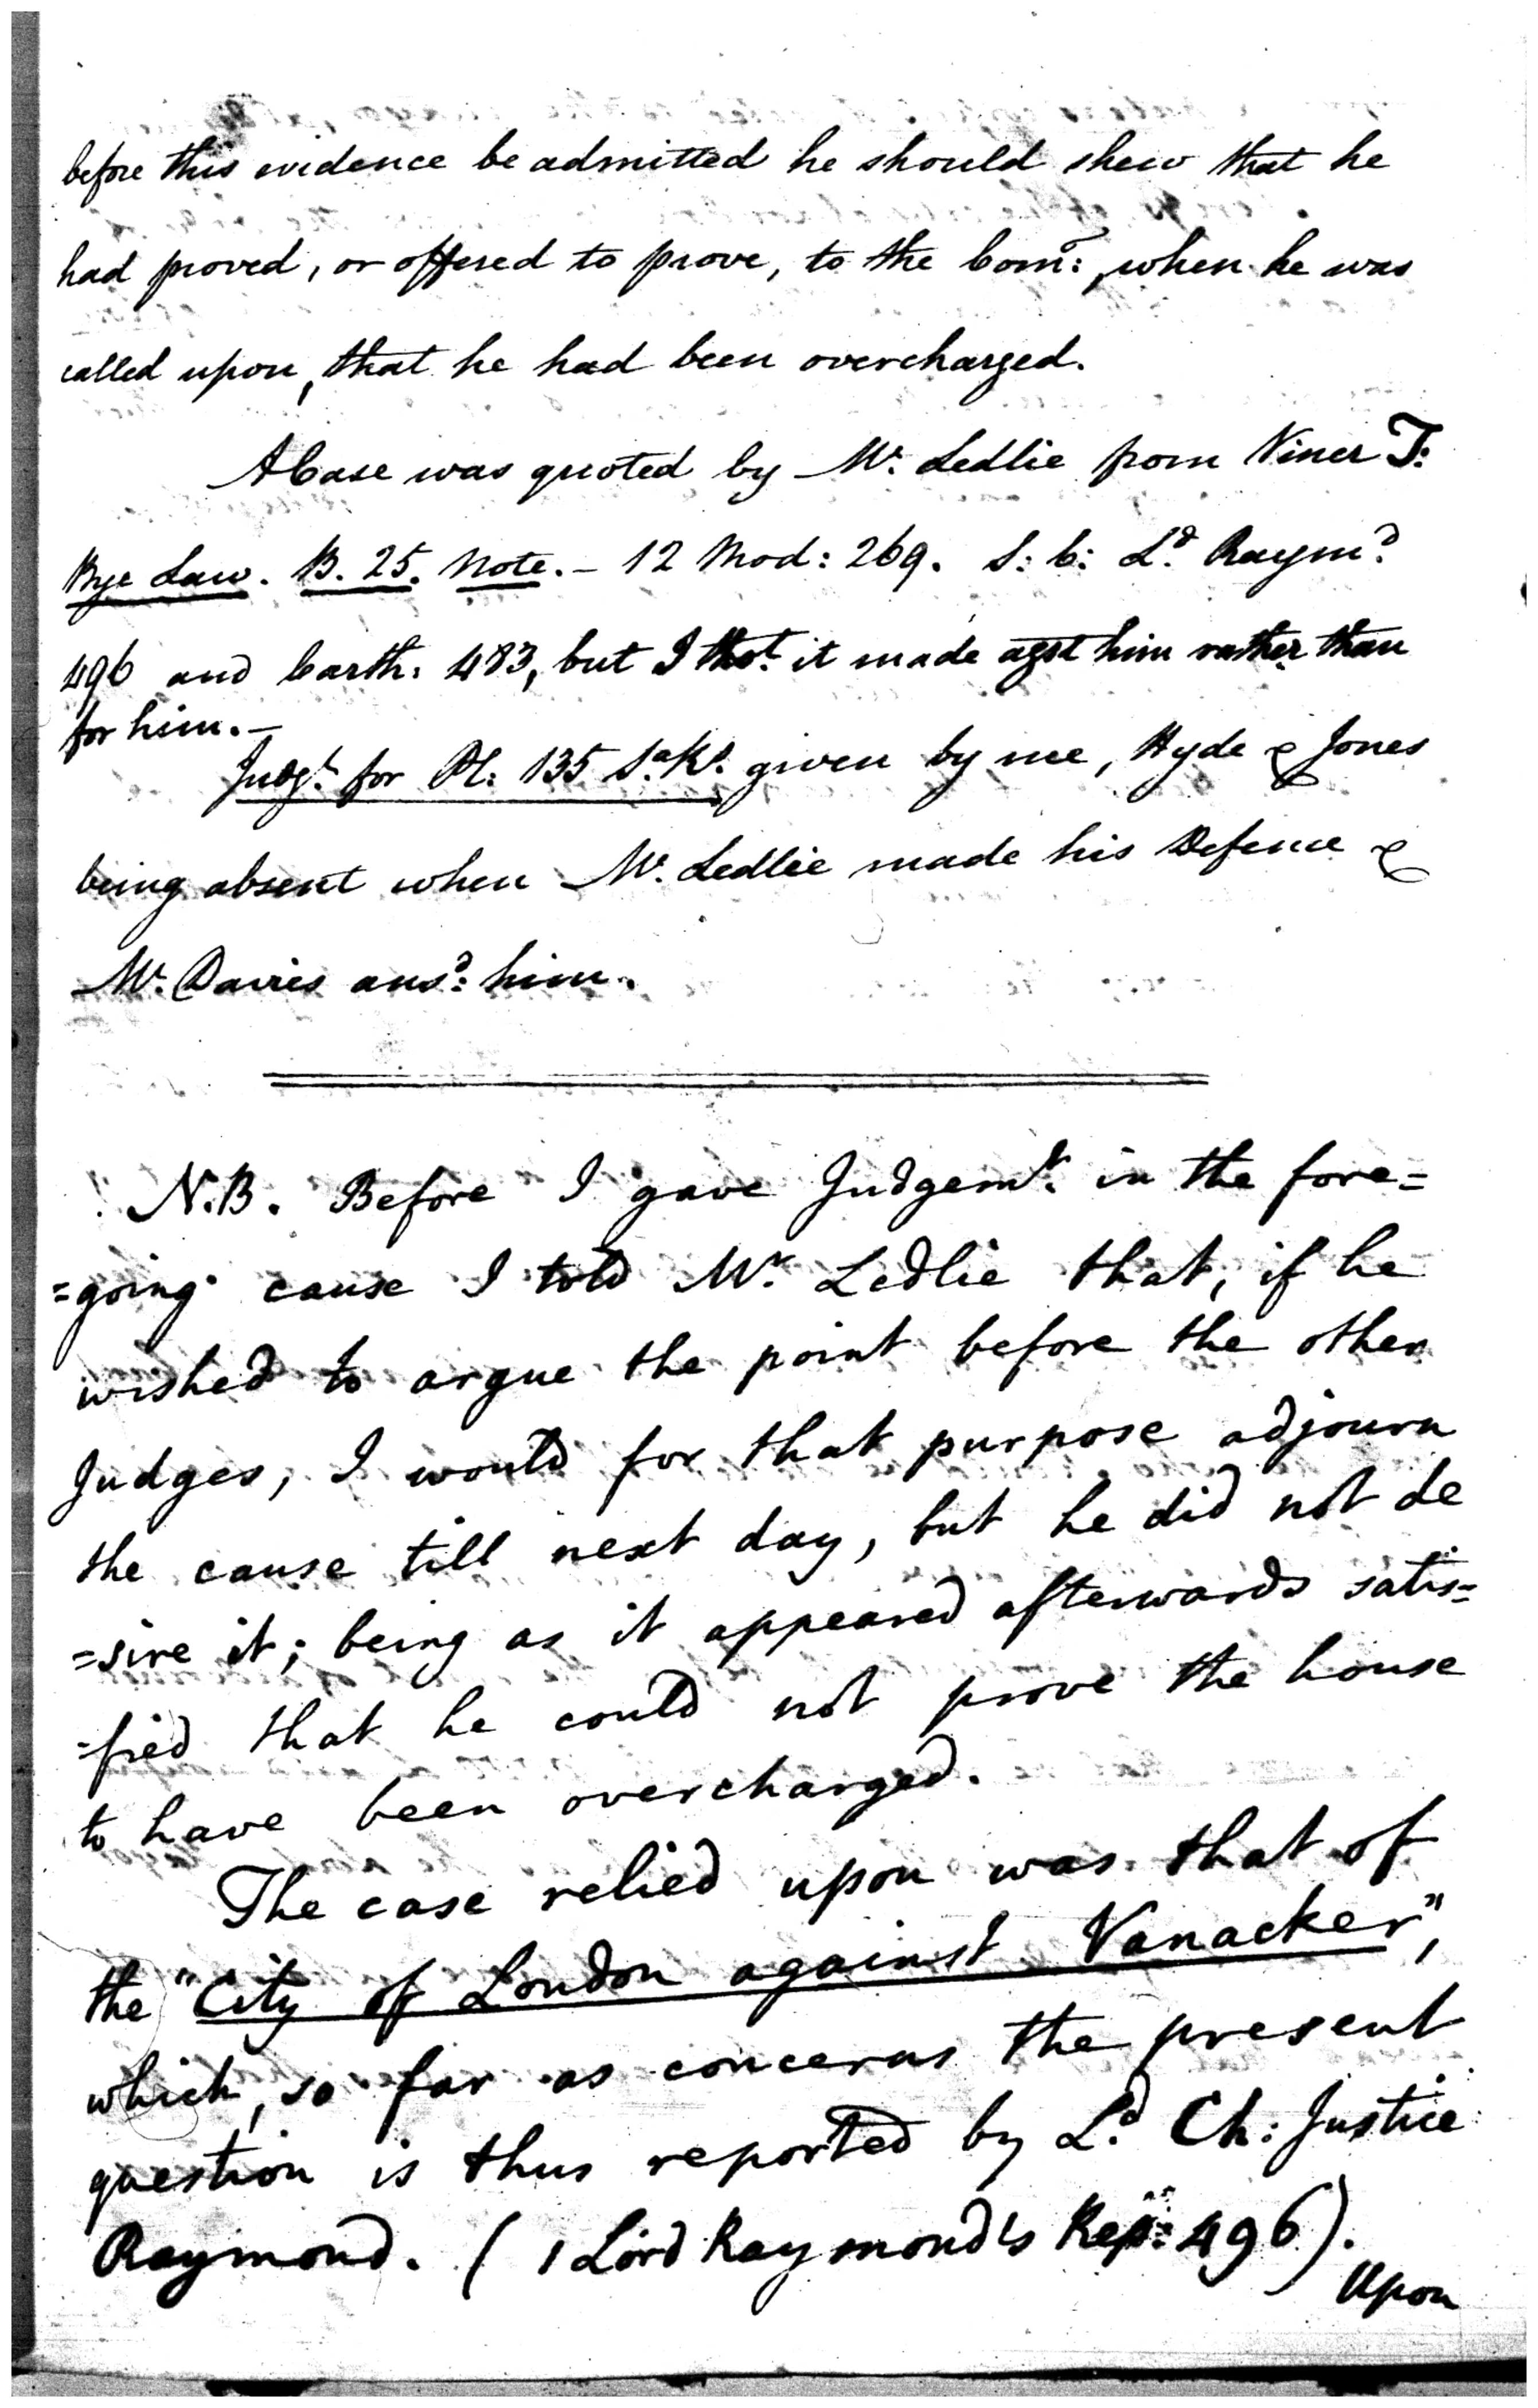 before this evidence be admitted he should shew that he
had proved, or offered to prove, to the Com:, when he was
called upon, that he had been overcharged.
A Case was quoted by Mr. Ledlie from Viner T:
Bye Law. B. 25. Note. - 12 Mod: 269. S: C: Ld. Raymd.
496 and Carth: 483, but I thot. it made agst him rather than
for him. -
Judgt. for Pl: 135 Sa. Rs. given by me, Hyde & Jones
being absent when Mr. Ledlie made his Defence &
Mr. Davies ansd: him.
N.B. Before I gave Judgemt. in the fore=
=going cause I told Mr. Ledlie that, if he
wished to argue the point before the other
Judges, I would for that purpose adjourn
the cause till next day, but he did not de
=sire it; being as it appeared afterwards satis=
=fied that he could not prove the house
to have been overcharged.
The case relied upon was that of
the "City of London against Vanacker",
which, so far as concerns the present
question is thus reported by Ld. Ch: Justice
Raymond. (1 Lord Raymond's Rep: 496).
Upon